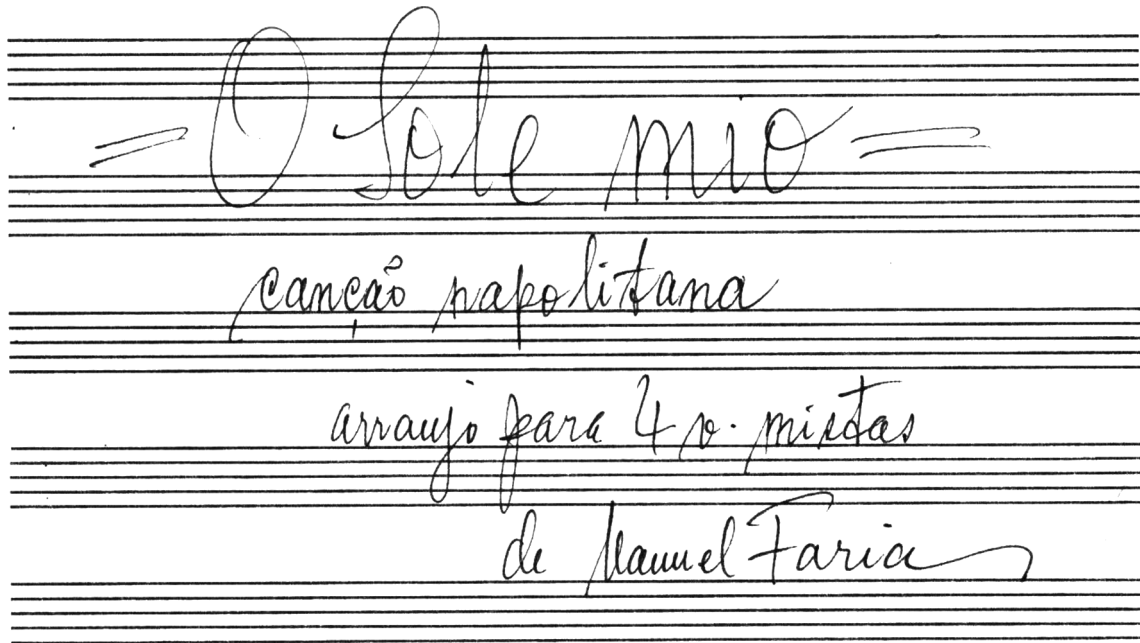 = O Sole mio =
canção napolitana
arranjo para 4 v. mistas
de Manuel Faria